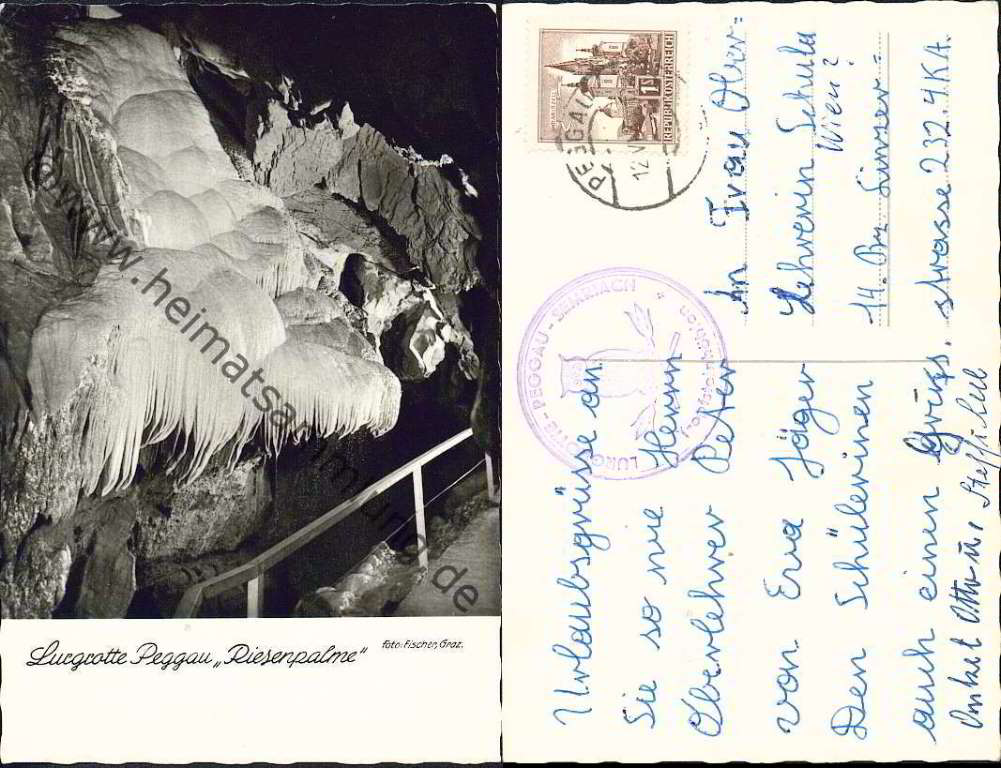 www.heimatsammlung.de
Lurgrotte Peggau „Riesenpalme"
Foto: Fischer, Graz.
REPUBLIK ÖSTERREICH
1S
PEGGAU
12. V
LURGROTTE - PEGGAU - SEMRIACH
An Frau Ober=
Lehrerin Schula
Wien?
14. Bz. Linzer=
strasse 232.4KA.
Urlaubsgrüsse an
Sie so wie Herrn
Oberlehrer Peter
von Erna Jäger
Den Schülerinen
auch einen Gruss.
Onkel Otto u.